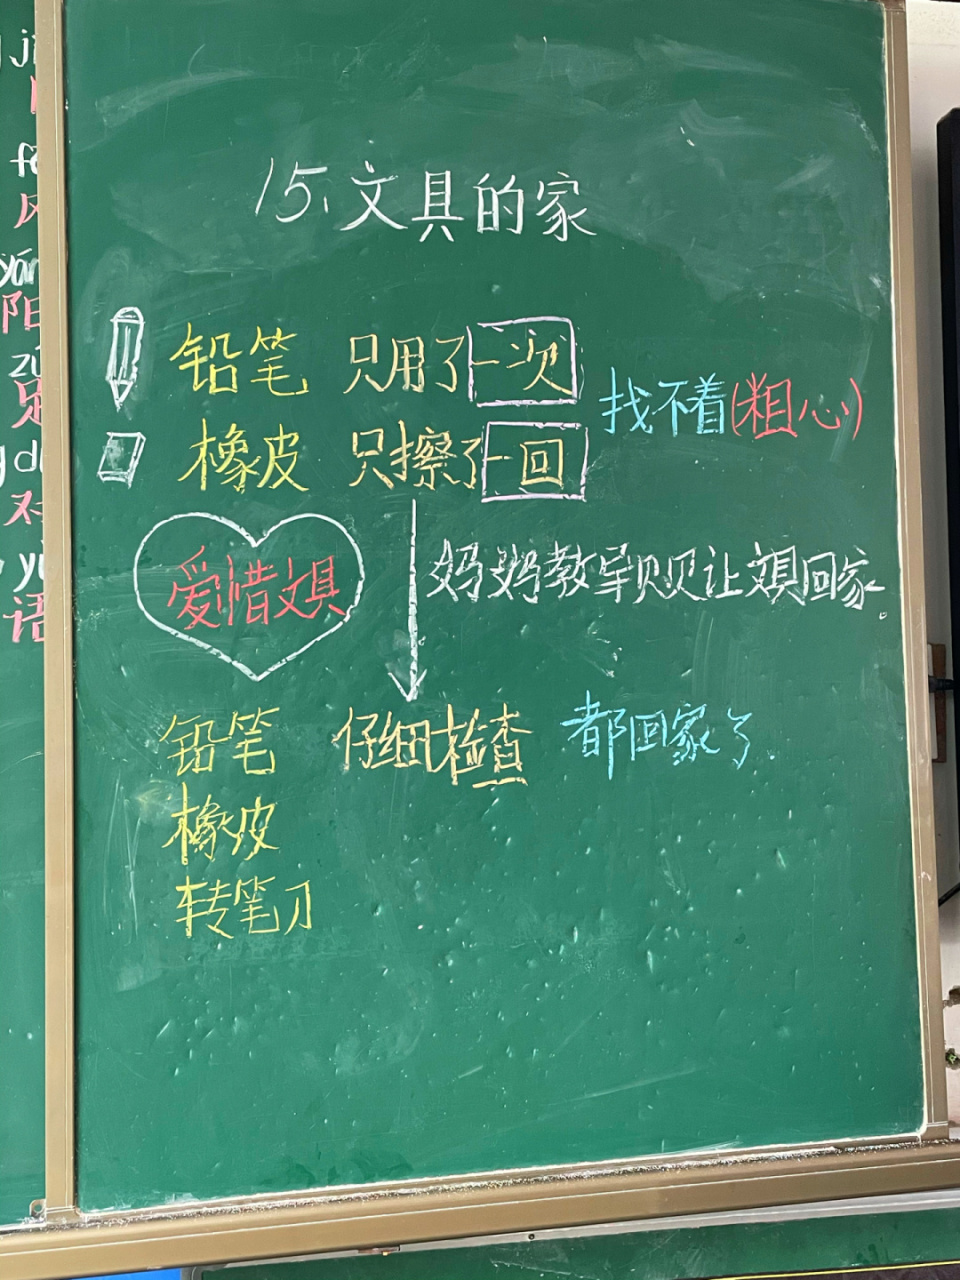 15、文具的家
铅笔 只用了一次
橡皮 只擦了一回
找不着(粗心)
爱惜文具
妈妈教导贝贝让文具回家。
铅笔 仔细检查 都回家了
橡皮
转笔刀
ji
fē
风
yán
阳
zú
足
d
对
yǔ
语